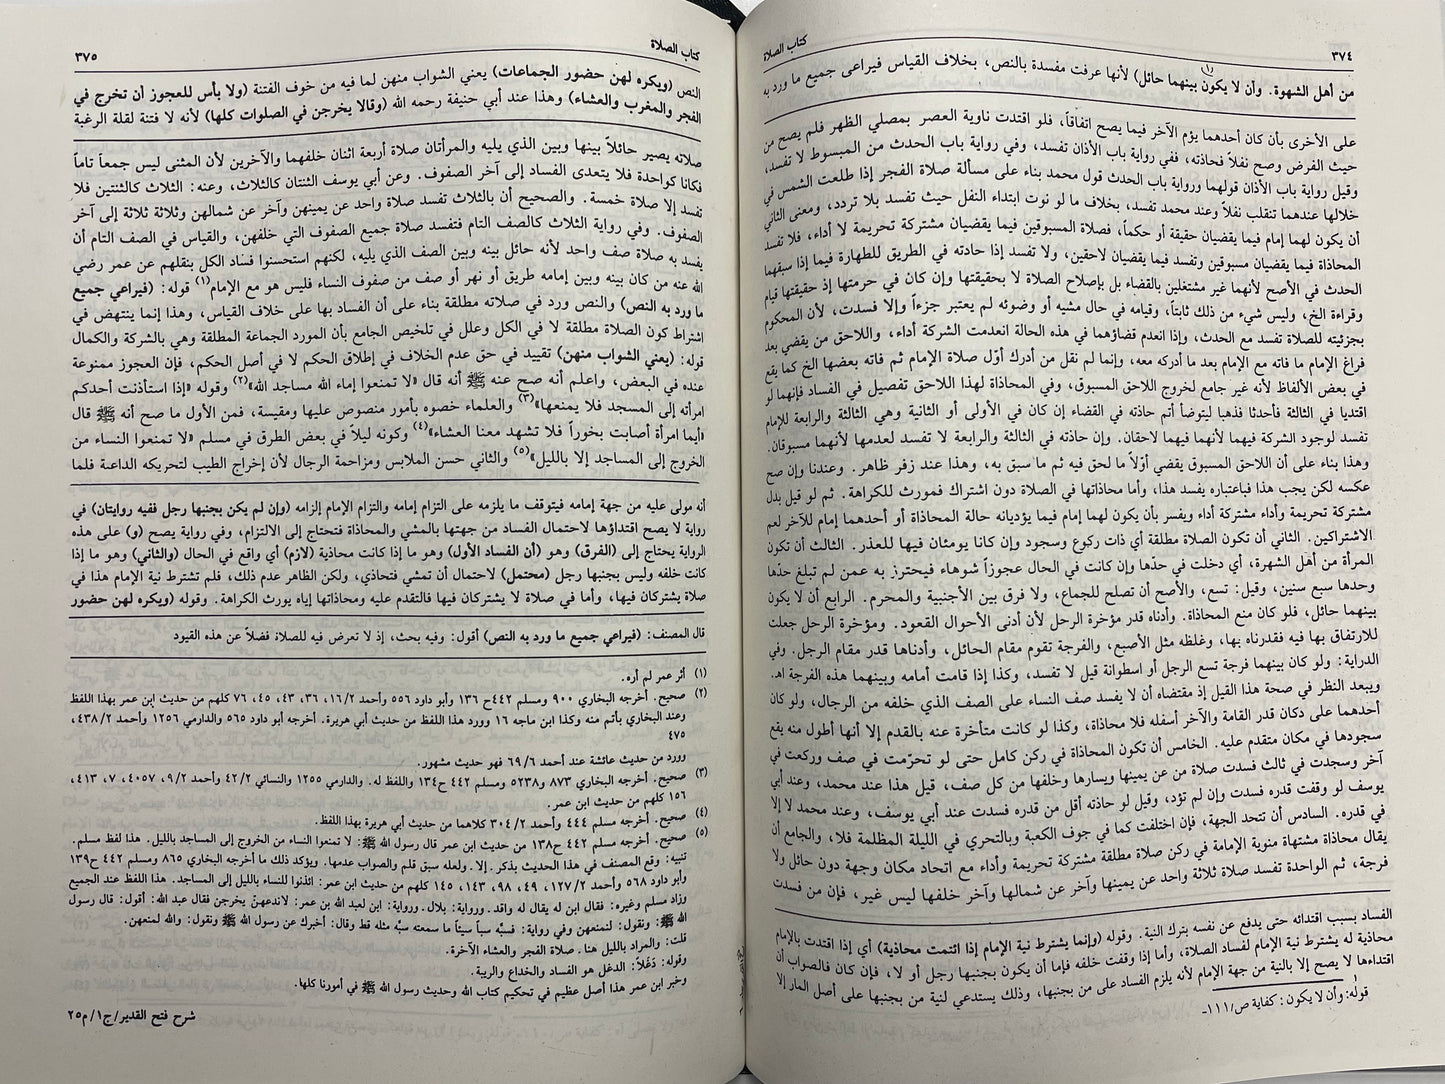 ٣٧٤
كتاب الصلاة
من أهل الشهوة. وأن لا يكون(١) بينهما حائل) لأنها عرفت مفسدة بالنص، بخلاف القياس فيراعى جميع ما ورد به
على الأخرى بأن كان أحدهما يؤم الآخر فيما يصح اتفاقاً، فلو اقتدت ناوية العصر بمصلي الظهر فلم يصح من
حيث الفرض وصح نفلاً فحاذته، ففي رواية باب الأذان تفسد، وفي رواية باب الحدث من المبسوط لا تفسد،
وقيل رواية باب الأذان قولهما ورواية باب الحدث قول محمد بناء على مسألة صلاة الفجر إذا طلعت الشمس في
خلالها عندهما تنقلب نفلاً وعند محمد تفسد، بخلاف ما لو نوت ابتداء النفل حيث تفسد بلا تردد، ومعنى الثاني
أن يكون لهما إمام فيما يقضيان حقيقة أو حكماً، فصلاة المسبوقين فيما يقضيان مشتركة تحريمة لا أداء، فلا تفسد
المحاذاة فيما يقضيان مسبوقين وتفسد فيما يقضيان لاحقين، ولا تفسد إذا حاذته في الطريق للطهارة فيما إذا سبقهما
الحدث في الأصح لأنهما غير مشتغلين بالقضاء بل بإصلاح الصلاة لا بحقيقتها وإن كان في حرمتها إذ حقيقتها قيام
وقراءة الخ، وليس شيء من ذلك ثابتاً، وقيامه في حال مشيه أو وضوئه لم يعتبر جزءاً وإلا فسدت، لأن المحكوم
بجزئيته للصلاة تفسد مع الحدث، وإذا انعدم قضاؤهما في هذه الحالة انعدمت الشركة أداء، واللاحق من يقضي بعد
فراغ الإمام ما فاته مع الإمام بعد ما أدركه معه، وإنما لم نقل من أدرك أوّل صلاة الإمام ثم فاته بعضها الخ كما يقع
في بعض الألفاظ لأنه غير جامع لخروج اللاحق المسبوق، وفي المحاذاة لهذا اللاحق تفصيل في الفساد فإنهما لو
اقتديا في الثالثة فأحدثا فذهبا ليتوضأ أتم حاذته في القضاء إن كان في الأولى أو الثانية وهي الثالثة والرابعة للإمام
تفسد لوجود الشركة فيهما لأنهما فيهما لاحقان. وإن حاذته في الثالثة والرابعة لا تفسد لعدمها لأنهما مسبوقان.
وهذا بناء على أن اللاحق المسبوق يقضي أوّلاً ما لحق فيه ثم ما سبق به، وهذا عند زفر ظاهر. وعندنا وإن صح
عكسه لكن يجب هذا فباعتباره يفسد هذا، وأما محاذاتها في الصلاة دون اشتراك فمورث للكراهة. ثم لو قيل بدل
مشتركة تحريمة وأداء مشتركة أداء ويفسر بأن يكون لهما إمام فيما يؤديانه حالة المحاذاة أو أحدهما إمام للآخر لعم
الاشتراكين. الثاني أن تكون الصلاة مطلقة أي ذات ركوع وسجود وإن كانا يومئان فيها للعذر. الثالث أن تكون
المرأة من أهل الشهرة، أي دخلت في حدها وإن كانت في الحال عجوزاً شوهاء فيحترز به عمن لم تبلغ حدّها
وحدها سبع سنين، وقيل: تسع، والأصح أن تصلح للجماع، ولا فرق بين الأجنبية والمحرم. الرابع أن لا يكون
بينهما حائل، فلو كان منع المحاذاة. وأدناه قدر مؤخرة الرحل لأن أدنى الأحوال القعود. ومؤخرة الرحل جعلت
للارتفاق بها فيه فقدرناه بها، وغلظه مثل الأصبع، والفرجة تقوم مقام الحائل، وأدناها قدر مقام الرجل. وفي
الدراية: ولو كان بينهما فرجة تسع الرجل أو اسطوانة قيل لا تفسد، وكذا إذا قامت أمامه وبينهما هذه الفرجة اهـ.
ويبعد النظر في صحة هذا القيل إذ مقتضاه أن لا يفسد صف النساء على الصف الذي خلفه من الرجال، ولو كان
أحدهما على دكان قدر القامة والآخر أسفله فلا محاذاة، وكذا لو كانت متأخرة عنه بالقدم إلا أنها أطول منه يقع
سجودها في مكان متقدم عليه. الخامس أن تكون المحاذاة في ركن كامل حتى لو تحرّمت في صف وركعت في
آخر وسجدت في ثالث فسدت صلاة من عن يمينها ويسارها وخلفها من كل صف، قيل هذا عند محمد، وعند أبي
يوسف لو وقفت قدره فسدت وإن لم تؤد، وقيل لو حاذته أقل من قدره فسدت عند أبي يوسف، وعند محمد لا إلا
في قدره. السادس أن تتحد الجهة، فإن اختلفت كما في جوف الكعبة وبالتحري في الليلة المظلمة فلا، والجامع أن
يقال محاذاة مشتهاة منوية الإمامة في ركن صلاة مطلقة مشتركة تحريمة وأداء مع اتحاد مكان وجهة دون حائل ولا
فرجة، ثم الواحدة تفسد صلاة ثلاثة واحد عن يمينها وآخر عن شمالها وآخر خلفها ليس غير، فإن من فسدت
الفساد بسبب اقتدائه حتى يدفع عن نفسه بترك النية. وقوله (وإنما يشترط نية الإمام إذا ائتمت محاذية) أي إذا اقتدت بالإمام
محاذية له يشترط نية الإمام لفساد الصلاة، وأما إذا وقفت خلفه فإما أن يكون بجنبها رجل أو لا، فإن كان فالصواب أن
اقتداءها لا يصح إلا بالنية من جهة الإمام لأنه يلزم الفساد على من بجنبها، وذلك يستدعي لنية من بجنبها على أصل المار إلا
قوله: وأن لا يكون: كفاية ص/١١١-
كتاب الصلاة
٣٧٥
النص (ويكره لهن حضور الجماعات) يعني الشواب منهن لما فيه من خوف الفتنة (ولا بأس للعجوز أن تخرج في
الفجر والمغرب والعشاء) وهذا عند أبي حنيفة رحمه الله (وقالا يخرجن في الصلوات كلها) لأنه لا فتنة لقلة الرغبة
صلاته يصير حائلاً بينها وبين الذي يليه والمرأتان صلاة أربعة اثنان خلفهما والآخرين لأن المثنى ليس جمعاً تاماً
فكانا كواحدة فلا يتعدى الفساد إلى آخر الصفوف. وعن أبي يوسف الثنتان كالثلاث، وعنه: الثلاث كالثنتين فلا
تفسد إلا صلاة خمسة. والصحيح أن بالثلاث تفسد صلاة واحد عن يمينهن وآخر عن شمالهن وثلاثة ثلاثة إلى آخر
الصفوف. وفي رواية الثلاث كالصف التام فتفسد صلاة جميع الصفوف التي خلفهن، والقياس في الصف التام أن
يفسد به صلاة صف واحد لأنه حائل بينه وبين الصف الذي يليه، لكنهم استحسنوا فساد الكل بنقلهم عن عمر رضي
الله عنه من كان بينه وبين إمامه طريق أو نهر أو صف من صفوف النساء فليس هو مع الإمام(١) قوله: (فيراعي جميع
ما ورد به النص) والنص ورد في صلاته مطلقة بناء على أن الفساد بها على خلاف القياس، وهذا إنما ينتهض في
اشتراط كون الصلاة مطلقة لا في الكل وعلل في تلخيص الجامع بأن المورد الجماعة المطلقة وهي بالشركة والكمال
قوله: (يعني الشواب منهن) تقييد في حق عدم الخلاف في إطلاق الحكم لا في أصل الحكم، فإن العجوز ممنوعة
عنده في البعض، واعلم أنه صح عنه ﷺ أنه قال «لا تمنعوا إماء الله مساجد الله»(٢) وقوله «إذا استأذنت أحدكم
امرأته إلى المسجد فلا يمنعها»(٣) والعلماء خصوه بأمور منصوص عليها ومقيسة، فمن الأول ما صح أنه ﷺ قال
«أيما امرأة أصابت بخوراً فلا تشهد معنا العشاء»(٤) وكونه ليلاً في بعض الطرق في مسلم «لا تمنعوا النساء من
الخروج إلى المساجد إلا بالليل»(٥) والثاني حسن الملابس ومزاحمة الرجال لأن إخراج الطيب لتحريكه الداعية فلما
أنه مولى عليه من جهة إمامه فيتوقف ما يلزمه على التزام إمامه والتزام الإمام إلزامه (وإن لم يكن بجنبها رجل ففيه روايتان) في
رواية لا يصح اقتداؤها لاحتمال الفساد من جهتها بالمشي والمحاذاة فتحتاج إلى الالتزام، وفي رواية يصح (و) على هذه
الرواية يحتاج إلى (الفرق) وهو (أن الفساد الأول) وهو ما إذا كانت محاذية (لازم) أي واقع في الحال (والثاني) وهو ما إذا
كانت خلفه وليس بجنبها رجل (محتمل) لاحتمال أن تمشي فتحاذي، ولكن الظاهر عدم ذلك، فلم تشترط نية الإمام هذا في
صلاة يشتركان فيها، وأما في صلاة لا يشتركان فيها فالتقدم عليه ومحاذاتها إياه يورث الكراهة. وقوله (ويكره لهن حضور
قال المصنف: (فيراعي جميع ما ورد به النص) أقول: وفيه بحث، إذ لا تعرض فيه للصلاة فضلاً عن هذه القيود
(١) أثر عمر لم أره.
(٢) صحيح. أخرجه البخاري ٩٠٠ ومسلم ٤٤٢ح ١٣٦ وأبو داود ٥٥٦ وأحمد ١٦/٢، ٣٦، ٤٣، ٤٥، ٧٦ كلهم من حديث ابن عمر بهذا اللفظ
وعند البخاري بأتم منه وكذا ابن ماجه ١٦ وورد هذا اللفظ من حديث أبي هريرة. أخرجه أبو داود ٥٦٥ والدارمي ١٢٥٦ وأحمد ٤٣٨/٢،
٤٧٥
وورد من حديث عائشة عند أحمد ٦٩/٦ فهو حديث مشهور.
(٣) صحيح. أخرجه البخاري ٨٧٣ و٥٢٣٨ ومسلم ٤٤٢ ح١٣٤ واللفظ له. والدارمي ١٢٥٥ والنسائي ٤٢/٢ وأحمد ٩/٢، ٤٠٥٧، ٧، ٤١٣،
١٥٦ كلهم من حديث ابن عمر.
(٤) صحيح. أخرجه مسلم ٤٤٤ وأحمد ٣٠٤/٢ كلاهما من حديث أبي هريرة بهذا اللفظ.
(٥) صحيح. أخرجه مسلم ٤٤٢ ح١٣٨ من حديث ابن عمر قال رسول الله ﷺ: لا تمنعوا النساء من الخروج إلى المساجد بالليل. هذا لفظ مسلم.
تنبيه: وقع المصنف في هذا الحديث بذكر. إلا. ولعله سبق قلم والصواب عدمها. ويؤكد ذلك ما أخرجه البخاري ٨٦٥ ومسلم ٤٤٢ ح١٣٩
وأبو داود ٥٦٨ وأحمد ١٢٧/٢، ٤٩، ٩٨، ١٤٣، ١٤٥ كلهم من حديث ابن عمر: ائذنوا للنساء بالليل إلى المساجد. هذا اللفظ عند الجميع
وزاد مسلم وغيره: فقال ابن له يقال له واقد. ورواية: بلال. ورواية: ابن لعبد الله بن عمر: لاندعهنّ يخرجن فقال عبد الله: أقول: قال رسول
الله ﷺ: ونقول: لنمنعهن وفي رواية: فسبَّه سباً سيئاً ما سمعته سبّه مثله قط وقال: أخبرك عن رسول الله ﷺ ونقول: والله لنمنعهن.
قلت: والمراد بالليل هنا. صلاة الفجر والعشاء الآخرة.
وقوله: دَغَلاً: الدغل هو الفساد والخداع والريبة.
وخبر ابن عمر هذا أصل عظيم في تحكيم كتاب الله وحديث رسول الله ﷺ في أمورنا كلها.
شرح فتح القدير/ج١/م٢٥